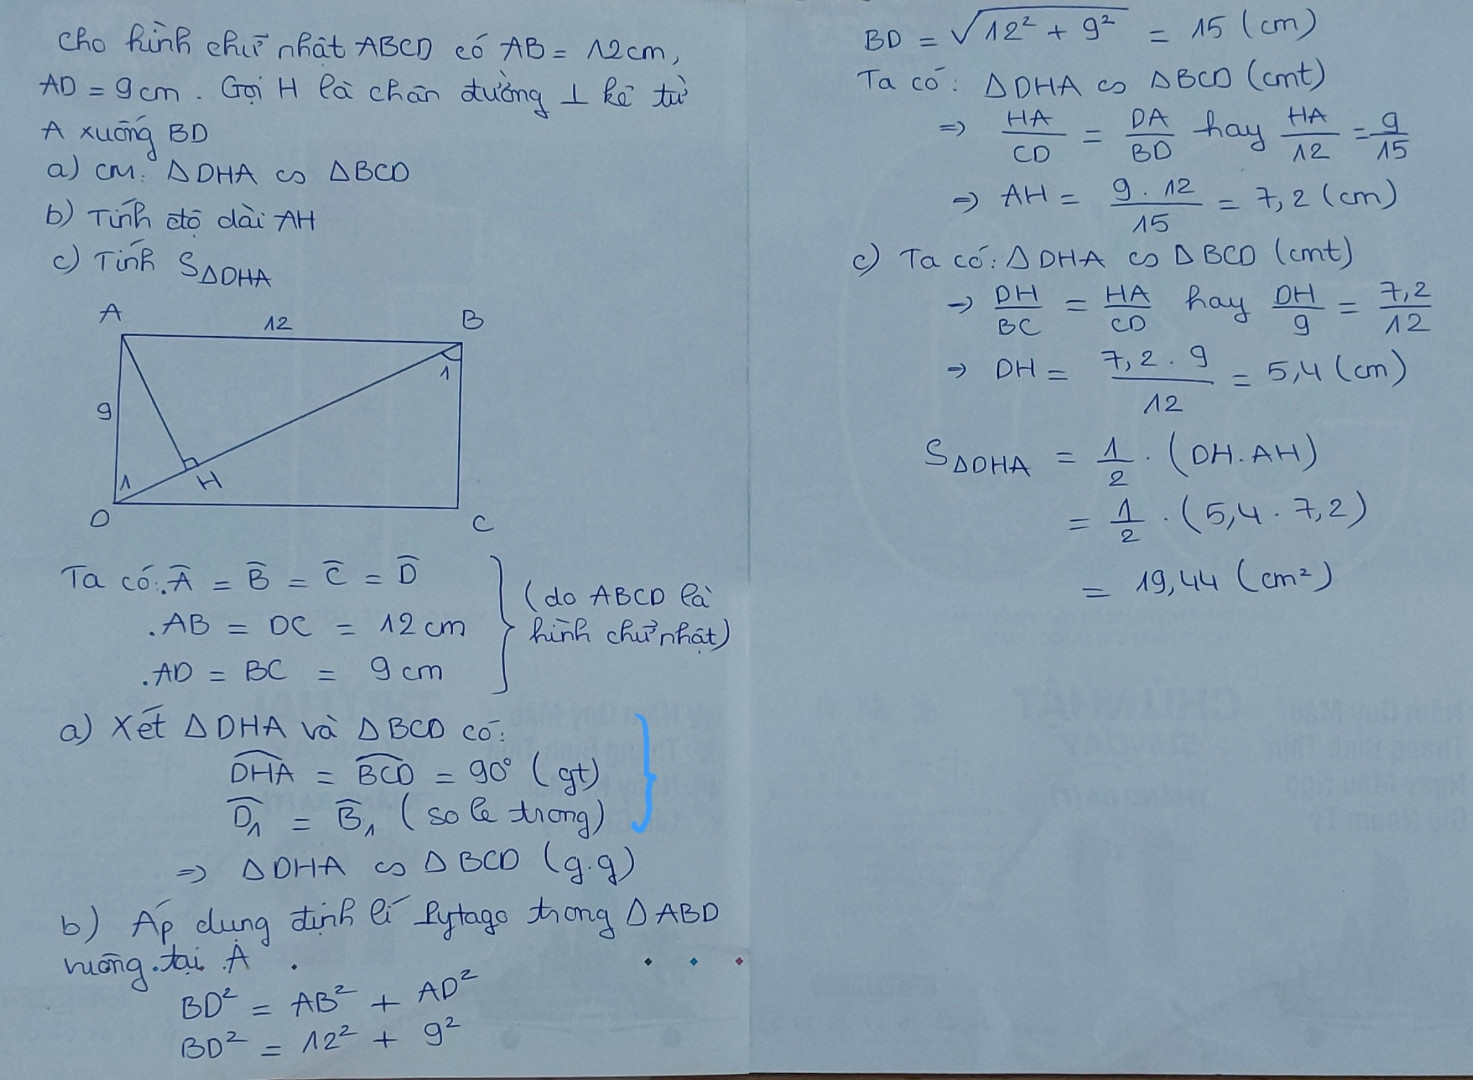 Cho hình chữ nhật ABCD có AB = 12cm,
AD = 9cm. Gọi H là chân đường ⊥ kẻ từ
A xuống BD
a) CM: ΔDHA ∽ ΔBCD
b) Tính độ dài AH
c) Tính SΔDHA
A 12 B
1
9
1 H
D C
Ta có: .Â = B̂ = Ĉ = D̂
.AB = DC = 12cm
.AD = BC = 9cm
(do ABCD là
hình chữ nhật)
a) Xét ΔDHA và ΔBCD có:
DHA = BCD = 90° (gt)
D̂₁ = B̂₁ (so le trong)
=> ΔDHA ∽ ΔBCD (g.g)
b) Áp dụng định lí Pytago trong ΔABD
vuông tại A
BD² = AB² + AD²
BD² = 12² + 9²
BD = √12² + 9² = 15 (cm)
Ta có: ΔDHA ∽ ΔBCD (cmt)
=> HA/CD = DA/BD hay HA/12 = 9/15
=> AH = 9.12/15 = 7,2 (cm)
c) Ta có: ΔDHA ∽ ΔBCD (cmt)
=> DH/BC = HA/CD hay DH/9 = 7,2/12
=> DH = 7,2.9/12 = 5,4 (cm)
SΔDHA = 1/2 . (DH.AH)
= 1/2 . (5,4 . 7,2)
= 19,44 (cm²)